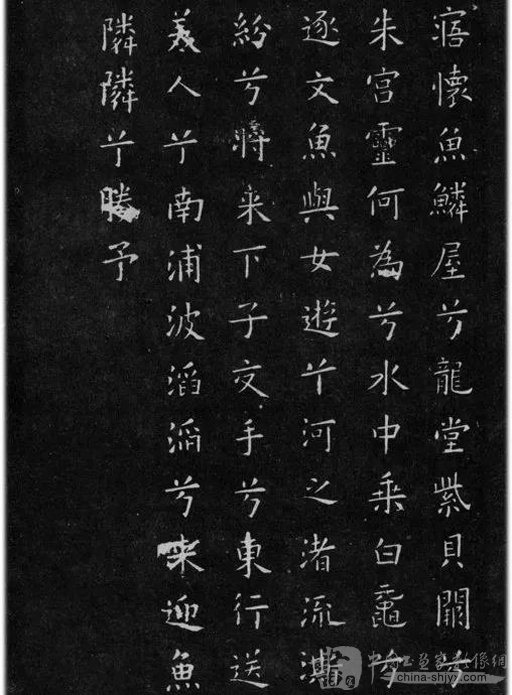 寤懷魚鱗屋兮龍堂紫貝闕兮
朱宮靈何為兮水中乘白黿兮
逐文魚與女遊兮河之渚流澌
紛兮將来下子交手兮東行送
美人兮南浦波滔滔兮来迎魚
隣隣兮媵予
china-shjyx.com